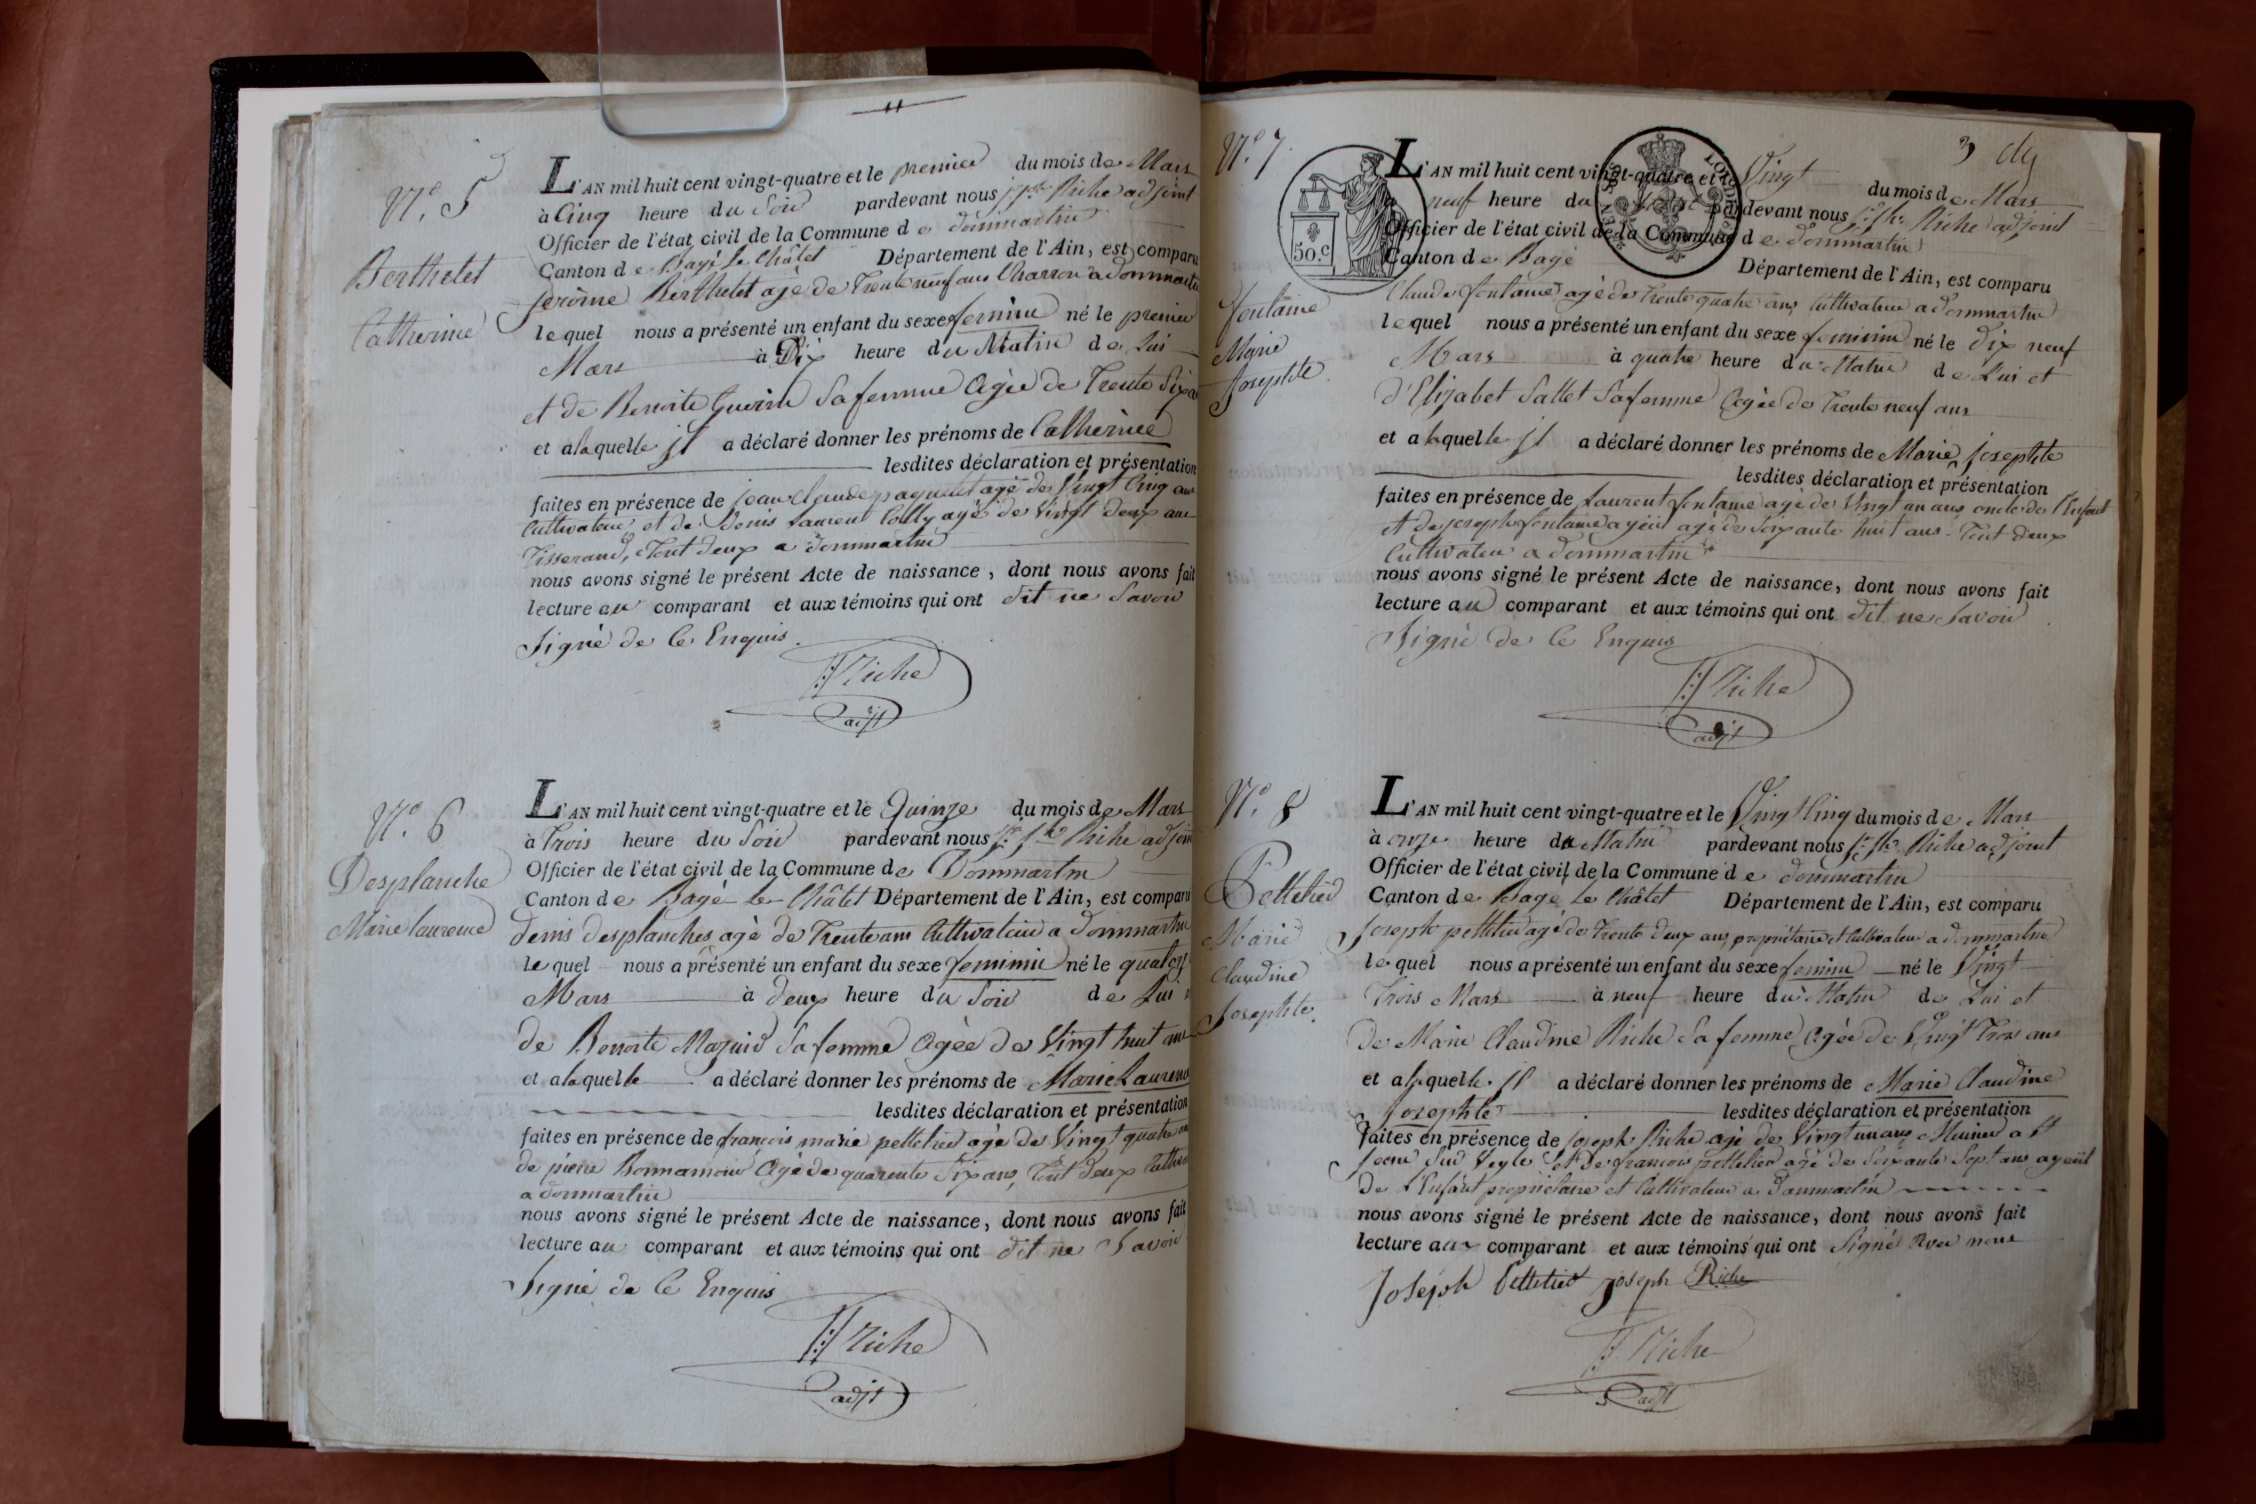 N.o 5
Berthelet
Catherine
L'AN mil huit cent vingt-quatre et le premier du mois de Mars
à Cinq heure du Soir pardevant nous Riche adjoint
Officier de l'état civil de la Commune de dommartin
Canton de Bagé le Châtel Département de l'Ain, est comparu
Jerôme Berthelet agé de Trente neuf ans Charron a Dommartin
lequel nous a présenté un enfant du sexe feminin né le premier
Mars à Dix heure du Matin de Lui
et de Benoite Guerin Sa femme Agée de Trente Six
et a laquelle jl a déclaré donner les prénoms de Catherine
lesdites déclaration et présentation
faites en présence de jean Claude paquelet agé de Vingt Cinq ans
Cultivateur et de Denis Laurent Colly agé de Vingt deux ans
Tisserand, Tout deux a dommartin
nous avons signé le présent Acte de naissance, dont nous avons fait
lecture au comparant et aux témoins qui ont dit ne Savoir
Signé de Ce Enquis.
Riche
adjt
N.o 6
Desplanche
Marie laurence
L'AN mil huit cent vingt-quatre et le Quinze du mois de Mars
à Trois heure du Soir pardevant nous Riche adjoint
Officier de l'état civil de la Commune de Dommartin
Canton de Bagé le Châtel Département de l'Ain, est comparu
denis desplanches agé de Trente ans Cultivateur a dommartin
lequel nous a présenté un enfant du sexe feminin né le quatorze
Mars à deux heure du Soir de Lui
de Benoite Mazuir Sa femme Agée de Vingt huit ans
et a laquelle a déclaré donner les prénoms de Marie Laurence
lesdites déclaration et présentation
faites en présence de françois marie pelletier agé de Vingt quatre ans
de pierre Bonnamour Agé de quarente Six ans, Tout deux Cultiv
a dommartin
nous avons signé le présent Acte de naissance, dont nous avons fait
lecture au comparant et aux témoins qui ont dit ne Savoir
Signé de Ce Enquis
Riche
adjt
3
N.o 7.
50.c
fontaine
Marie
Josephte
L'AN mil huit cent vingt-quatre et le Vingt du mois de Mars
à neuf heure du pardevant nous Riche adjoint
Officier de l'état civil de la Commune de dommartin
Canton de Bagé Département de l'Ain, est comparu
Claude fontaine agé de Trente quatre ans Cultivateur a dommartin
lequel nous a présenté un enfant du sexe feminin né le dix neuf
Mars à quatre heure du Matin de Lui et
d'Elizabet Sallet Sa femme Agée de Trente neuf ans
et a laquelle jl a déclaré donner les prénoms de Marie josephte
lesdites déclaration et présentation
faites en présence de Laurent fontaine agé de Vingt un ans oncle de l'Enfant
et de joseph fontaine ayeul agé de Soixante huit ans Tout deux
Cultivateur a dommartin
nous avons signé le présent Acte de naissance, dont nous avons fait
lecture au comparant et aux témoins qui ont dit ne Savoir
Signé de Ce Enquis
Riche
adjt
N.o 8
Pelletier
Marie
Claudine
Josephte.
L'AN mil huit cent vingt-quatre et le Vingt Cinq du mois de Mars
à onze heure du Matin pardevant nous Riche adjoint
Officier de l'état civil de la Commune de dommartin
Canton de Bagé Le Châtel Département de l'Ain, est comparu
Joseph pelletier agé de Trente deux ans, propriétaire et Cultivateur a dommartin
lequel nous a présenté un enfant du sexe feminin né le Vingt
Trois Mars à neuf heure du Matin de Lui et
de Marie Claudine Riche Sa femme, Agée de Vingt Trois ans
et a laquelle jl a déclaré donner les prénoms de Marie Claudine
Josephte lesdites déclaration et présentation
faites en présence de joseph Riche agé de Vingt un ans Meunier a St
Jean Sur Veyle et de francois pelletier agé de Soixante Sept ans ayeüil
de L'Enfant propriétaire et Cultivateur a Dommartin
nous avons signé le présent Acte de naissance, dont nous avons fait
lecture aux comparant et aux témoins qui ont Signé Avec nous
Joseph Pelletier Joseph Riche
Riche
adjt